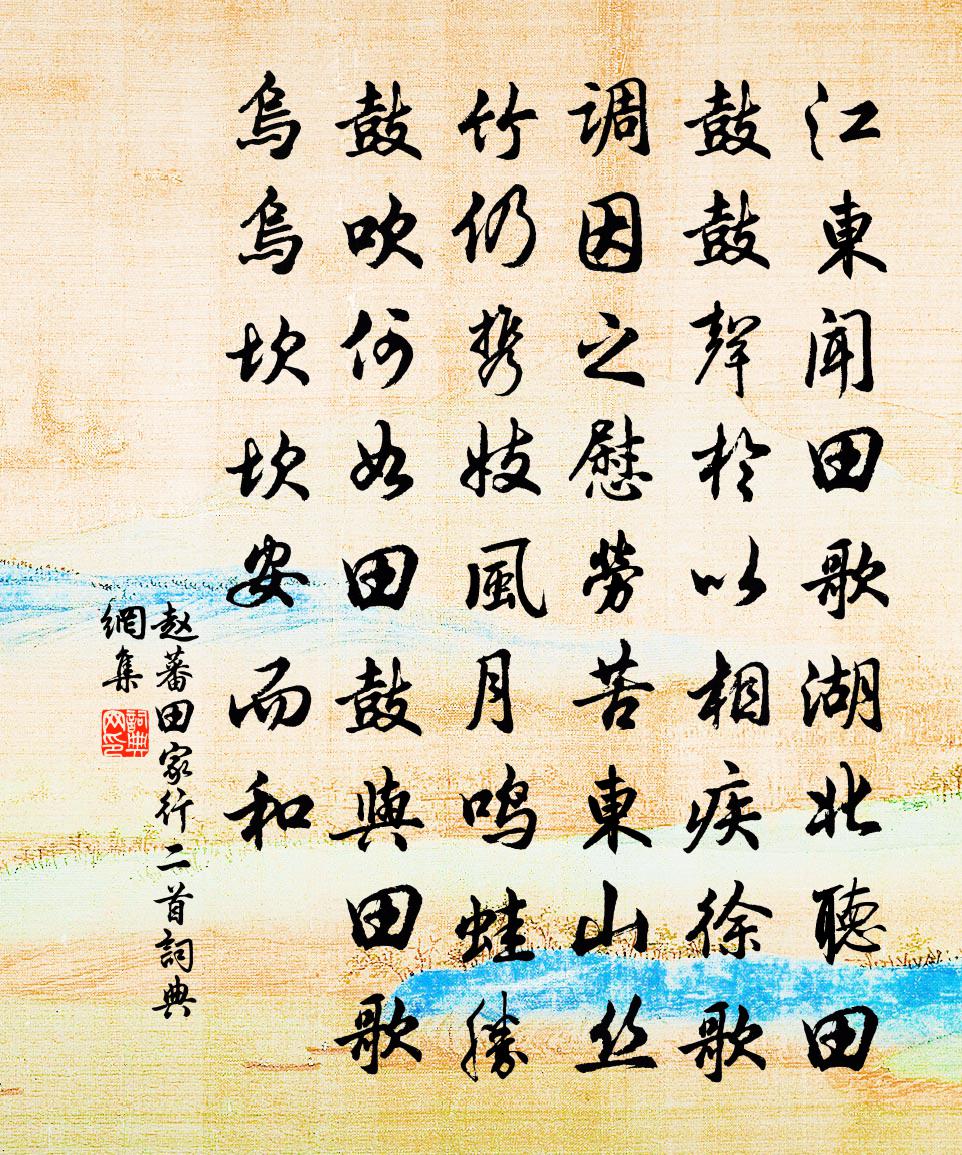 江東闻田歌湖北聽田
鼓鼓聲於以相疾徐歌
调因之慰勞苦東山丝
竹仍携妓風月鸣蛙勝
鼓吹何如田鼓與田歌
烏烏坎坎安而和
赵蕃田家行二首詞典
網集
詞典
网印